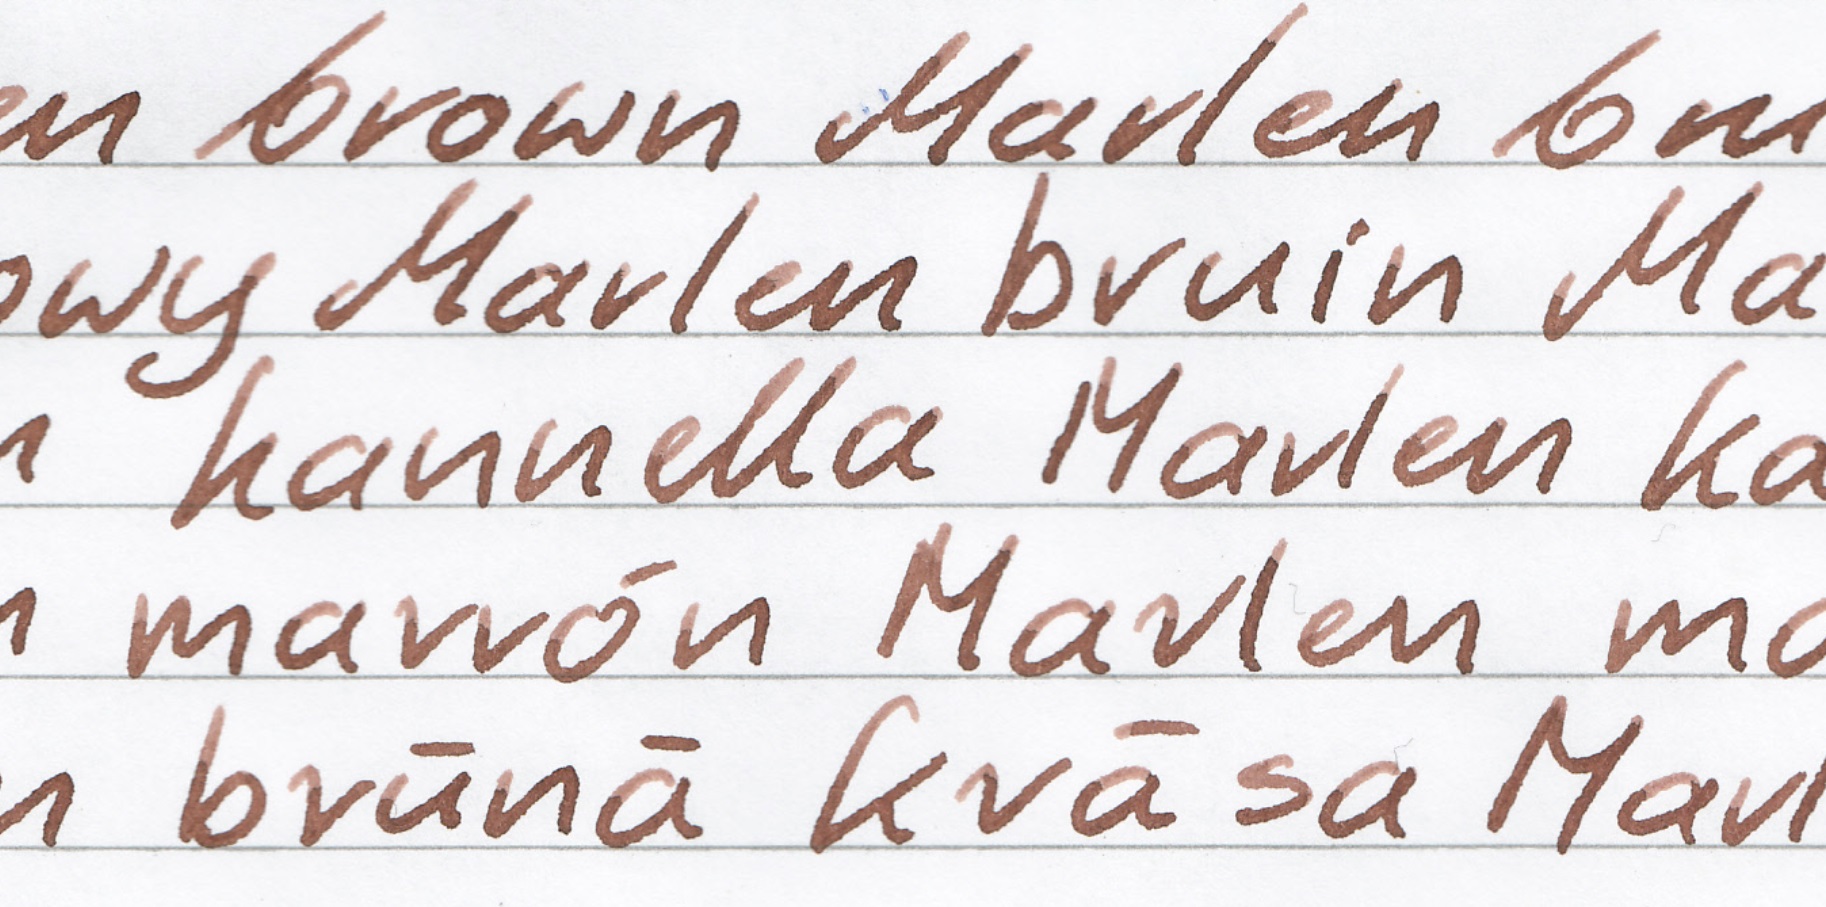 en brown Marlen bru
owy Marlen bruin Ma
n kannella Marlen ka
n marrón Marlen ma
n brūnā krāsa Marl